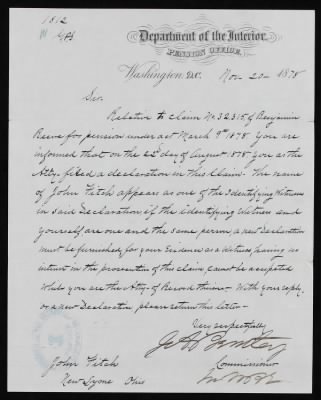 1812
Department of the Interior,
PENSION OFFICE,
Washington, D.C. Nov. 20 1878
Sir.
Relative to claim No. 32315 of Benjamin
Reeve for pension under act March 9th 1878 you are
informed that on the 22d day of August 1878 you as the
Atty. filed a declaration in this Claim. The name
of John Fitch appears as one of the Identifying Witness
in said Declaration, if the identifying witness and
yourself are one and the same person a new Declaration
must be furnished, for your Evidence as a Witness, having an
interest in the prosecution of this claim, cannot be accepted
while you are the Atty. of Record thereon. With your reply
or a new Declaration please return this letter.
Very respectfully
J A Bentley
Commissioner
John Fitch
New Lyme Ohio